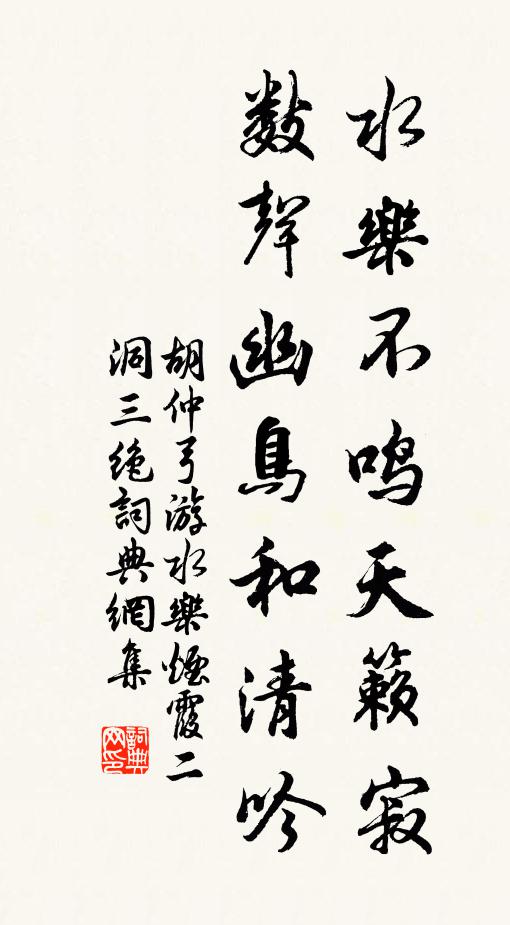 水樂不鸣天籁寂
数聲幽鳥和清吟
胡仲弓游水樂煙霞二
洞三绝詞典網集
詞典网印